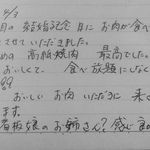 4/3
目の 結婚記念日に お肉が食べ
させていただきました。
めの 高級焼肉 最高でした。
おいしくて、食べ放題にしなく
おいしい お肉 いただきに 来
ます。
看板娘のお姉さん? 感じ良